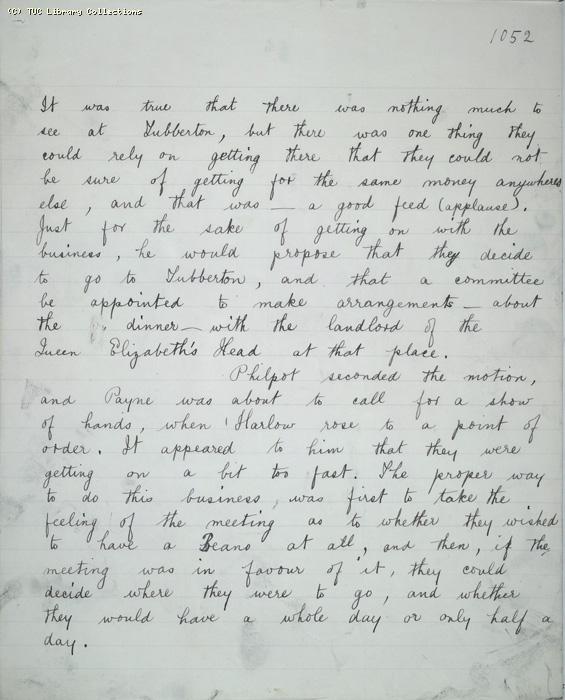 (C) TUC Library Collections
1052
It was true that there was nothing much to
see at Tubberton, but there was one thing they
could rely on getting there that they could not
be sure of getting for the same money anywhere
else, and that was — a good feed (applause).
Just for the sake of getting on with the
business, he would propose that they decide
to go to Tubberton, and that a committee
be appointed to make arrangements — about
the dinner — with the landlord of the
Queen Elizabeth's Head at that place.
Philpot seconded the motion,
and Payne was about to call for a show
of hands, when Harlow rose to a point of
order. It appeared to him that they were
getting on a bit too fast. The proper way
to do this business, was first to take the
feeling of the meeting as to whether they wished
to have a Beano at all, and then, if the
meeting was in favour of it, they could
decide where they were to go, and whether
they would have a whole day or only half a
day.